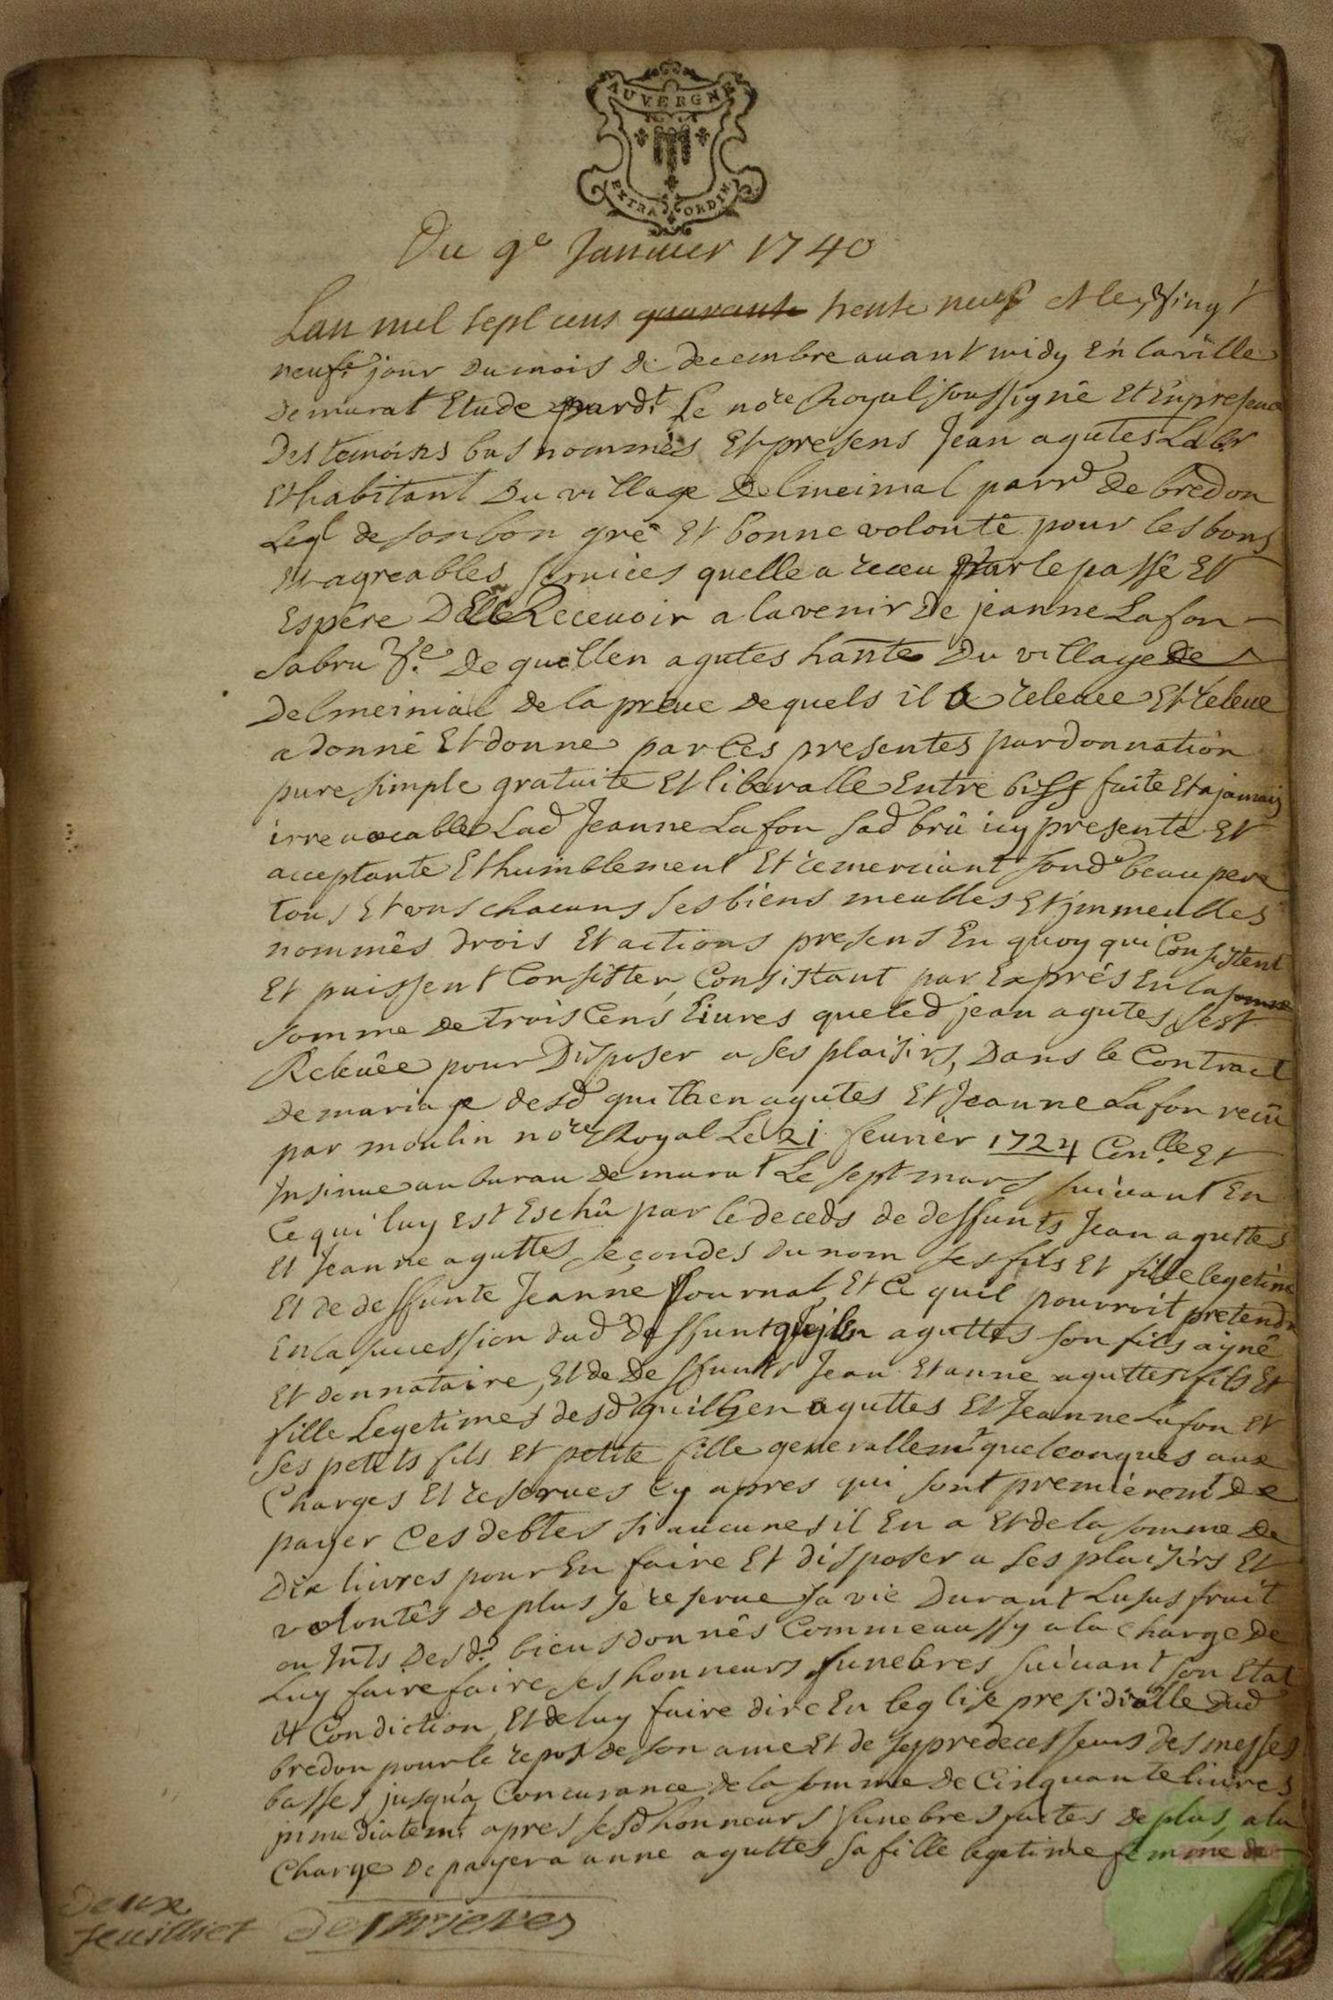 AUVERGNE
EXTRAORDIN
Du 9e Januier 1740
Lan mil sept cens quarante trente neuf et le vingt
neufe. jour du mois de decembre auant midy En la ville
de murat Etude pardt Le nore Royal soussigné Et En presence
Des temoins bas nommés Et presens Jean agutes Labr
Et habitant Du village Delmeimal parrd De bredon
Leql de son bon gré Et bonne volonté pour les bons
Et agreables seruices quelle a receu par le passé Et
Espére Delle Receuoir a lavenir De jeanne Lafon
sa bru fe. De guillen agutes hante Du village De
Delmeinial De la preue dequels il a releuee Et releue
a donné Et donne par Ces presentes par donnation
pure simple gratuite Et liberalle Entre bifs faite Et a jamais
irreuocable Lad Jeanne Lafon sad brû icy presente Et
acceptante Et humblement Et remerciant sond beau pere
tous Et vns chacuns ses biens meubles Et jnmeubles
nommês drois Et actions presens En quoy qui Consistent
Et puissent Consister, Consistant par Exprês En la somme
somme de trois Cens Liures que led jean agutes sest
Releuêe pour Disposer a ses plaisirs, Dans le Contract
de mariage desd guillien agutes Et Jeanne Lafon recû
par moulin nore Royal Le 21 feurier 1724 Conlle Et
Insinue au bureau de murat Le sept mars suiuant En
Ce qui luy Est Eschû par le deceds de deffunts Jean aguttes
Et Jeanne aguttes secondes du nom ses fils Et fille legetime
Et de deffunte Jeanne Journal, Et Ce quil pourroit pretendre
En la succession dud deffunt aguttes son fils ayné
Et donnataire, Et de Deffunts Jean Et anne aguttes fils Et
fille Legetimes desd guillien aguttes Et Jeanne Lafon Et
ses petits fils Et petite fille generallemt quelconques aux
Charges Et reserues Cy apres qui sont premiéremt De
payer Ces debtes si aucunes il En a Et de la somme De
Dix liures pour En faire Et disposer a ses plaisirs Et
volontês de plus se reserue sa vie Durant Lusufruit
ou Jnts Desd. biens donnés Comme aussy a la charge De
Luy faire faire ses honneurs funebres suiuant son Etat
Et Condiction, Et de luy faire dire En leglise presidialle Dud
bredon pour le repos de son ame Et de ses predecesseurs des messes
basses jusqua Concurance de la somme De Cinquante liures
jnmediatemt apres sesd honneurs funebres faites de plus, a la
Charge De payer a anne aguttes sa fille legetime femme de
Deux
feuilliet